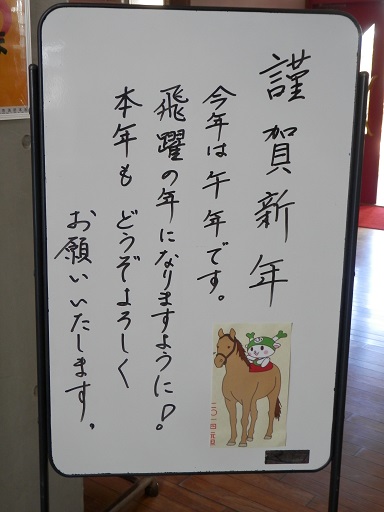 謹賀新年
今年は午年です。
飛躍の年になりますように!
本年も どうぞよろしく
お願いいたします。
二〇一四 元旦